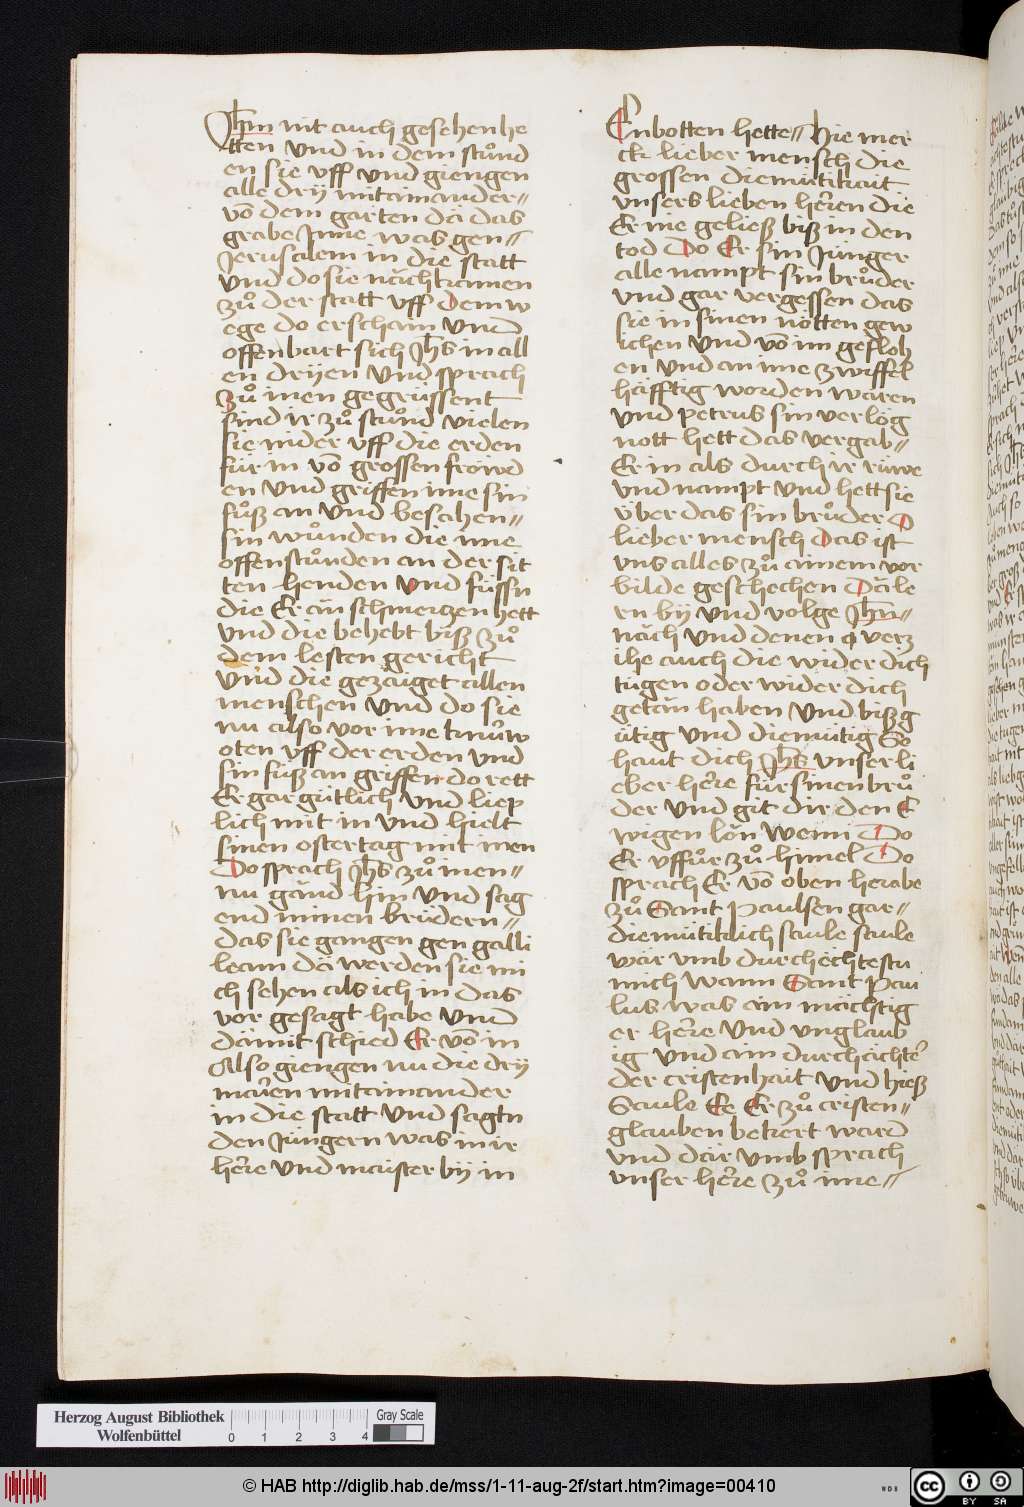 Jhm nit auch gesehen he
tten Vnd in dem stůnd
en sie vff Vnd giengen
alle drÿ mitainander=
võ dem garten dä das
grabe Jnne was gen=
Jerusalem in die statt
Vnd do sie nächt kamen
zů der statt vff dem w
ege do erschain Vnd
offenbart sich Jhs in all
en drÿen Vnd sprach
zů inen gegrüssent
sind ir zů stůnd vielen
sie nider vff die erden
für in võ grossen fröwd
en Vnd griffen ime sin
fůß an Vnd besahen=
sin wůnden die ime
offenstůnden an der sit
ten henden Vnd füssn
die Er än schmertzen hett
Vnd die behebt biß zů
dem lesten gericht
Vnd die gezäuget allen
menschen Vnd do sie
nu also vor ime knůw
oten vff der erden vnd
sin fůß an griffen do rett
Er gar gütlich Vnd liep
lich mit in vnd hielt
sinen ostertag mit inen
Do sprach Jhs zů inen=
nu gänd hin Vnd sag
end minen brüdern=
das sie gangen gen galli
leam dä werden sie mi
ch sehen als ich in das
vor gesagt habe Vnd
dämit schied Er võ in
Also giengen nu die drÿ
marien mitainander
in die statt Vnd sagtn
den Jüngern was in ir
here Vnd maister bÿ in
Enbotten hette= Hie mer
ck lieber mensch die
grossen diemütikait
vnsers lieben heren die
Er nie geließ biß in den
tod Do Er sin Jünger
alle nampt sin brůder
vnd gar vergessen das
sie in sinen nötten gew
ichen Vnd võ im gefloh
en vnd an ime zwiffel
häfftig worden waren
Vnd petrus sin verlög
nott hett das vergab=
Er in als durch ir rüwe
vnd nampt Vnd hett sie
v̈ber das sin brůder O
lieber mensch Das ist
vns alles zů ainem vor
bilde geschechen Dä le
rn bÿ vnd volge Jhm=
näch Vnd denen verz
ihe auch die wider dich
tügen oder wider dich
getän haben Vnd biß g
ütig Vnd diemütig So
haut dich Jhs vnser li
eber here für sinen brů
der Vnd git dir den E
wigen lön Wenn Do
Er vffůr zů himel Do
sprach Er võ oben herabe
zů Sant Paulsen gar=
diemütiklich saule saule
wär vmb durchëchtestu
mich wann Sant Pau
lus was ain mächtig
er here Vnd vnglaub
ig Vnd ain durchächter
der cristenhait Vnd hieß
Saule Ee Er zů cristen=
glauben bekert ward
Vnd där Vmb sprach
vnser here zů ime=
Herzog August Bibliothek
Wolfenbüttel
0 1 2 3 4
Gray Scale
© HAB http://diglib.hab.de/mss/1-11-aug-2f/start.htm?image=00410
WDB
cc BY SA